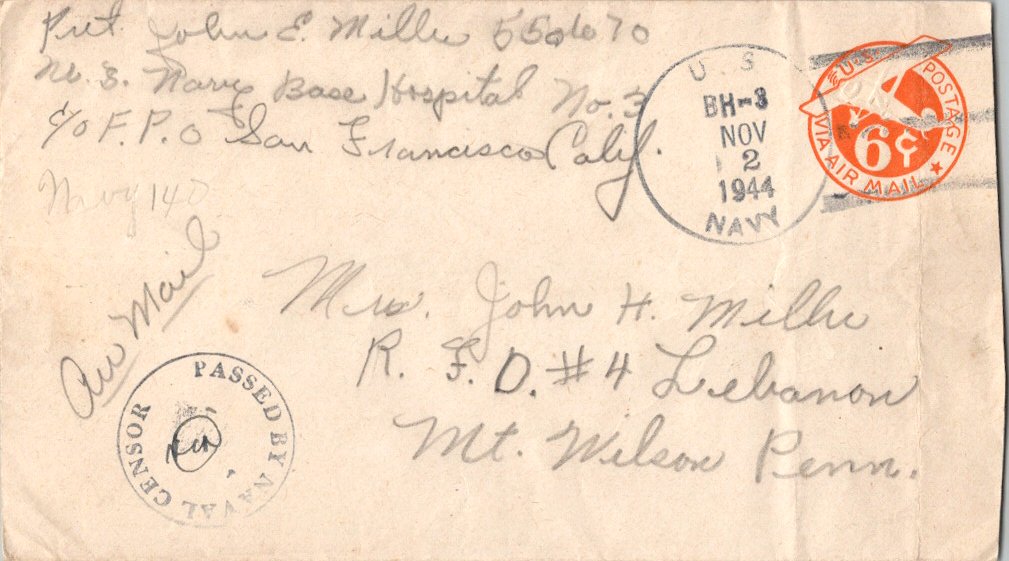 Pvt. John E. Miller 550670
No. 3. Navy Base Hospital No. 3
c/o F. P. O San Francisco Calif.
Air Mail
U S
BH-3
NOV
2
1944
NAVY
U.S. POSTAGE
6¢
VIA AIR MAIL
Mrs. John H. Miller
R. F. D. #4 Lebanon
Mt. Wilson Penn.
PASSED BY NAVAL CENSOR